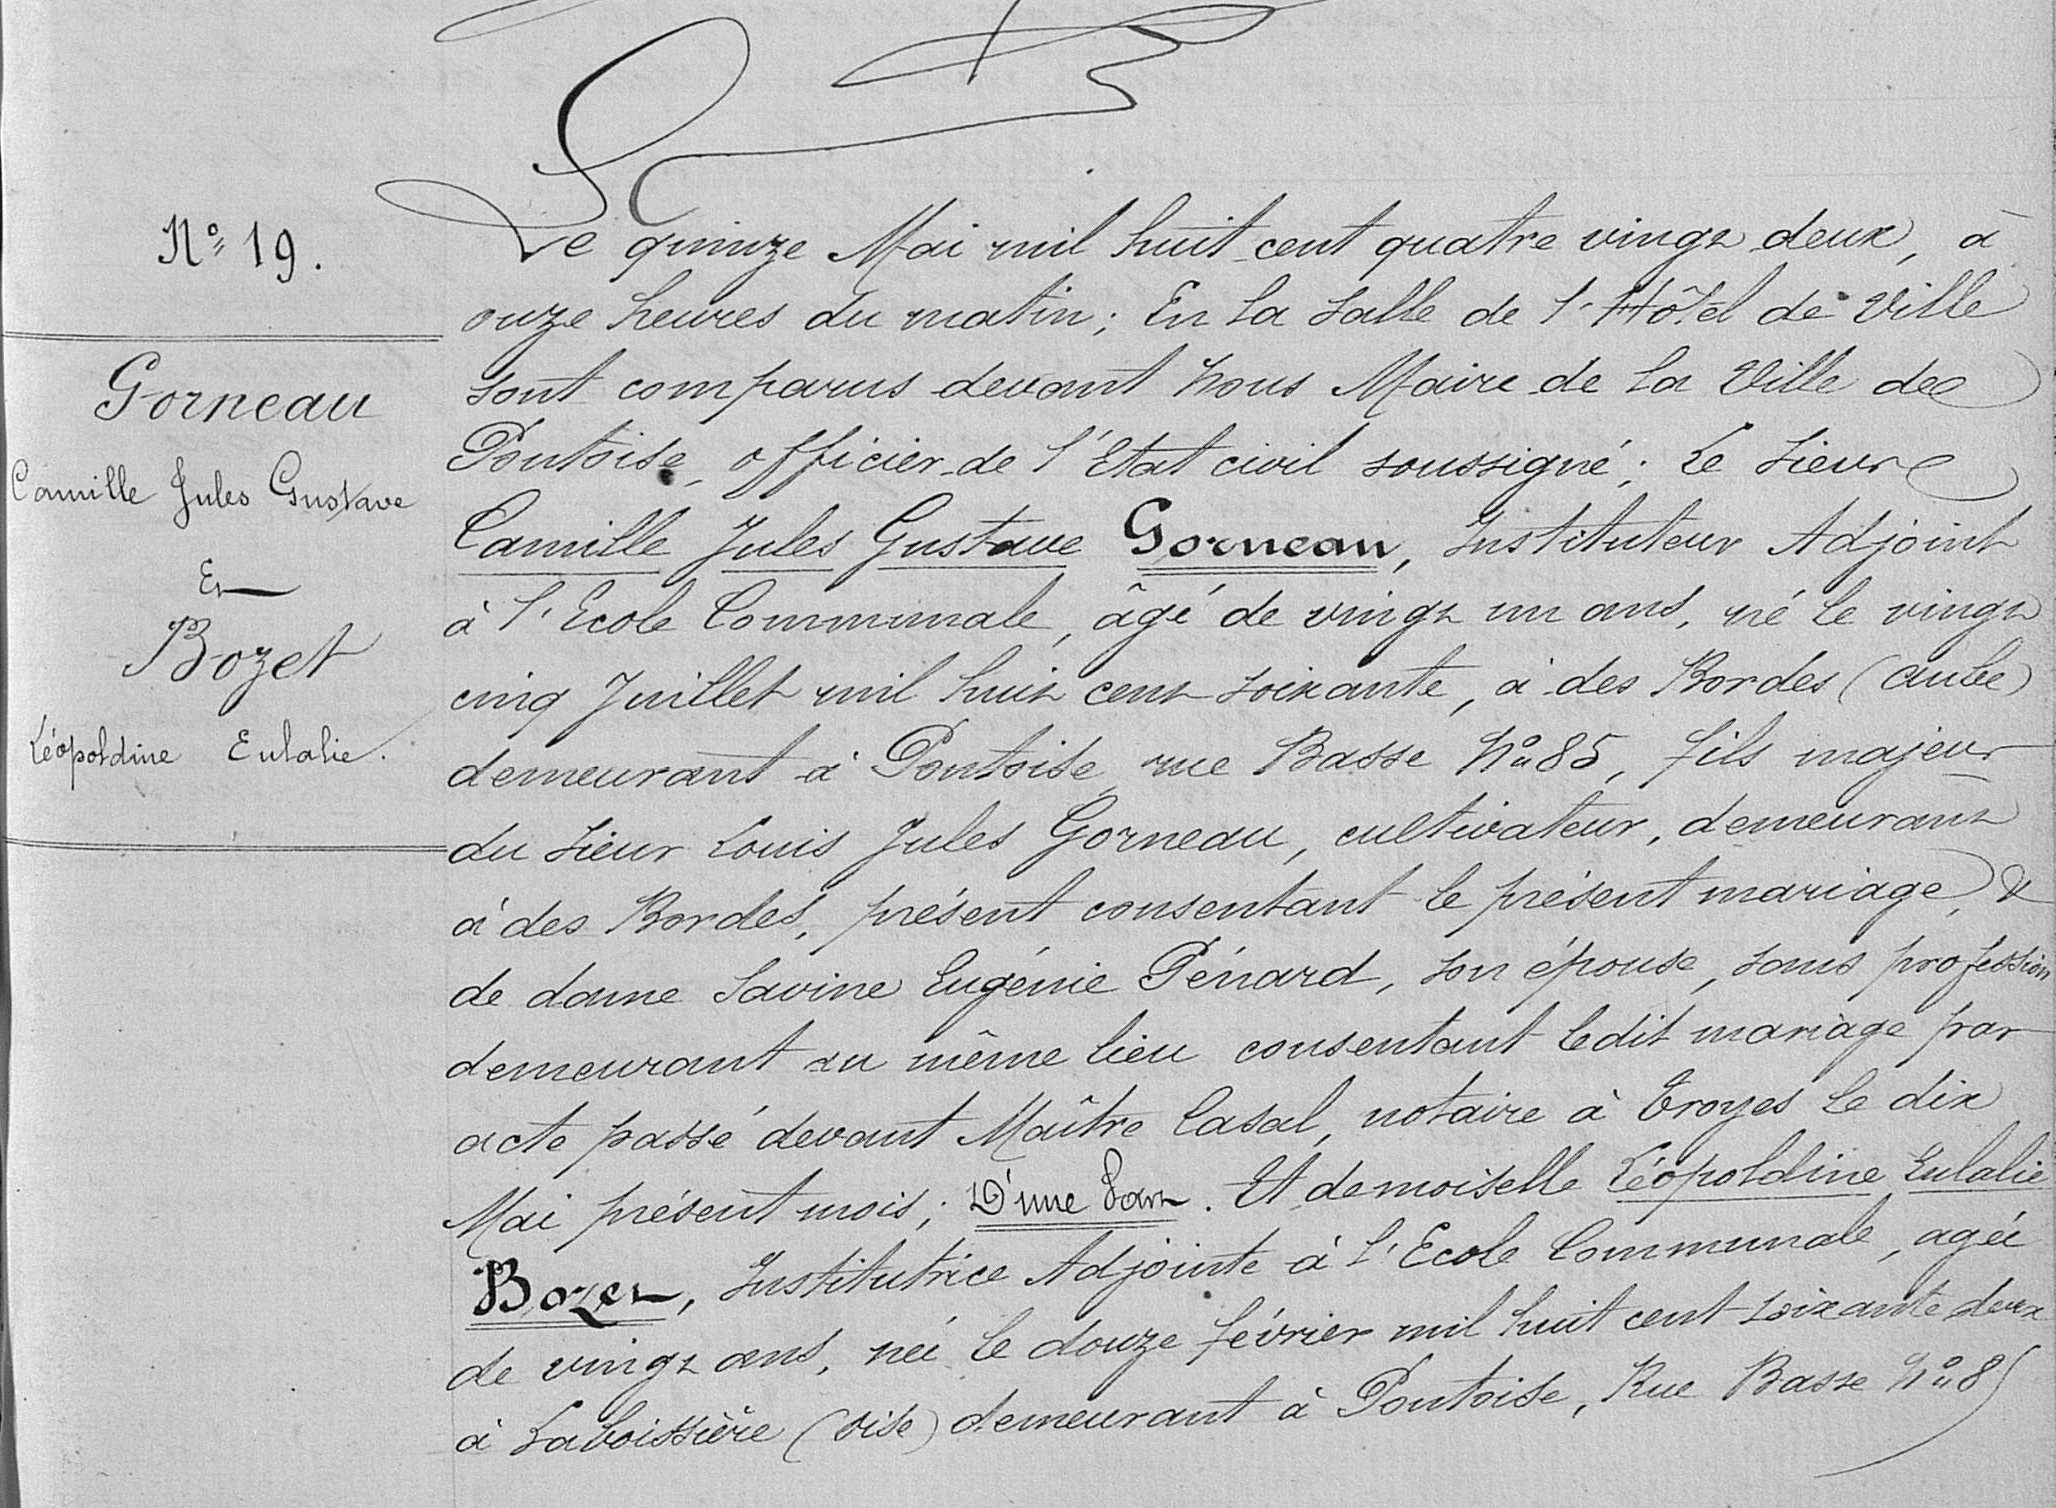 N° 19.
Gorneau
Camille Jules Gustave
Et
Bozet
Léopoldine Eulalie.
Le quinze Mai mil huit cent quatre vingt deux, à
onze heures du matin; En la salle de l'Hôtel de Ville
sont comparus devant nous Maire de la Ville de
Pontoise, officier de l'Etat civil soussigné; Le Sieur
Camille Jules Gustave Gorneau, Instituteur Adjoint
à l'Ecole Communale, âgé de vingt un ans, né le vingt
cinq Juillet mil huit cent soixante, à des Bordes (aube)
demeurant à Pontoise, rue Basse N° 85, fils majeur
du Sieur Louis Jules Gorneau, cultivateur, demeurant
à des Bordes, présent consentant le présent mariage, &
de dame Savine Eugénie Pénard, son épouse, sans profession
demeurant au même lieu consentant ledit mariage par
acte passé devant Maître Casal, notaire à Troyes le dix
Mai présent mois; D'une Part. Et demoiselle Léopoldine Eulalie
Bozet, Institutrice Adjointe à l'Ecole Communale, agée
de vingt ans, née le douze février mil huit cent soixante deux
à Laboissière (oise) demeurant à Pontoise, Rue Basse N° 85